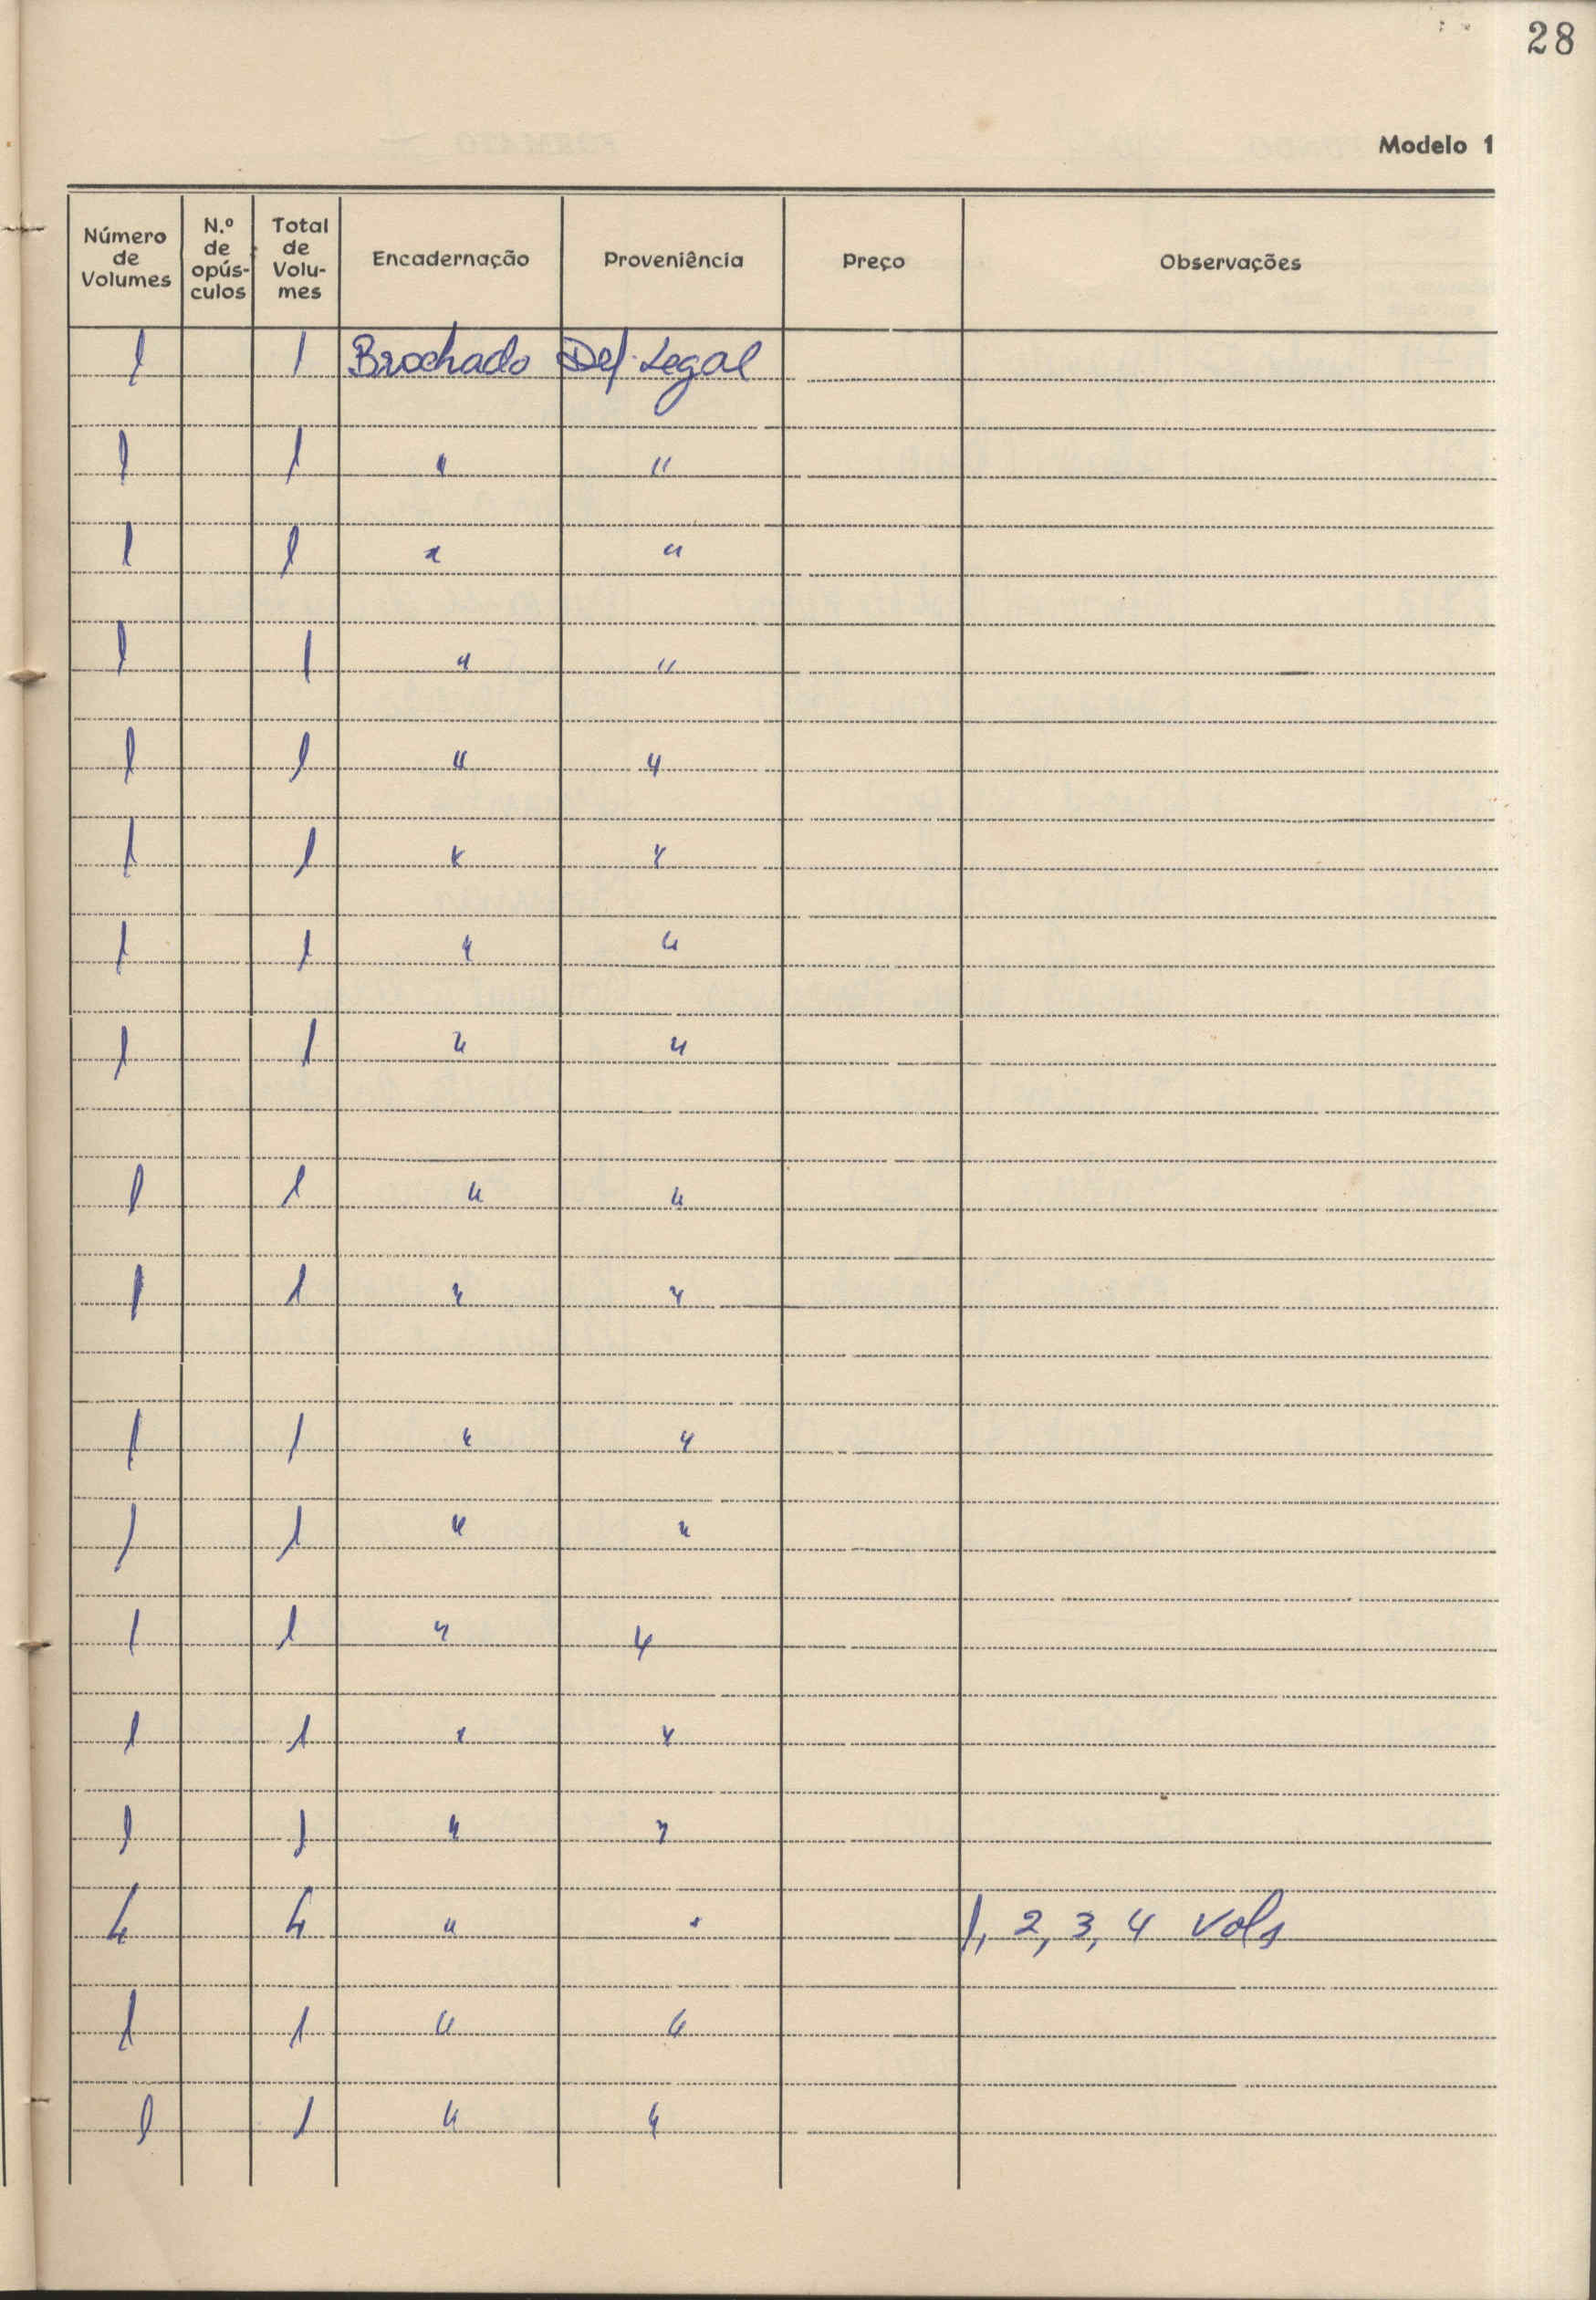 28
Modelo 1
Número de Volumes N.º de opús-culos Total de Volu-mes Encadernação Proveniência Preço Observações
1 1 Brochado Dep. Legal
1 1 " "
1 1 " "
1 1 " "
1 1 " "
1 1 " "
1 1 " "
1 1 " "
1 1 " "
1 1 " "
1 1 " "
1 1 " "
1 1 " "
1 1 " "
1 1 " "
4 4 " " 1, 2, 3, 4 Vols
1 1 " "
1 1 " "